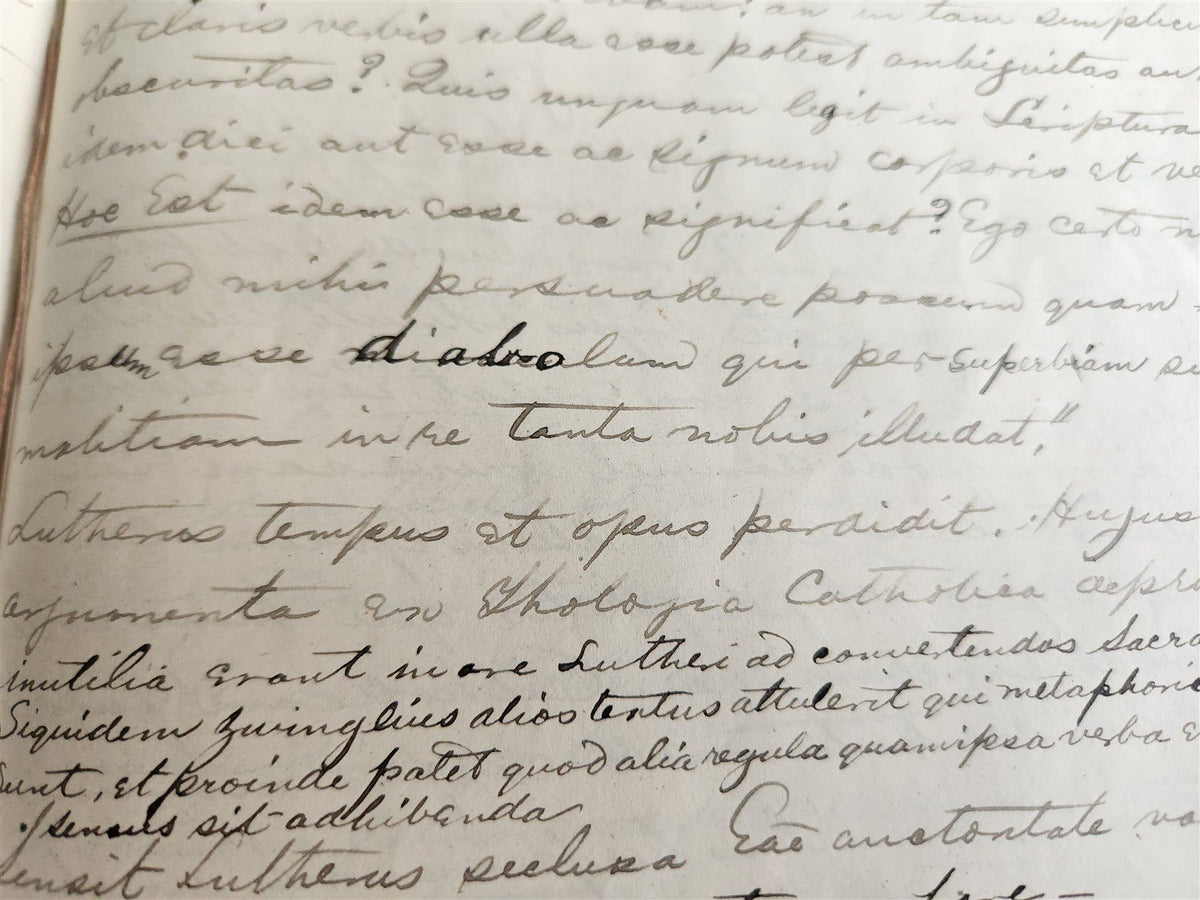 an in tam simplici
et claris verbis ulla esse potest ambiguitas au
obscuritas? Quis unquam legit in Scriptura
idem dici aut esse ac signum corporis et ve
Hoc Est idem esse ac significat? Ego certo n
aliud mihi persuadere possum quam
ipsum esse diabolum qui per superbiam su
malitiam in re tanta nobis illudat."
Lutherus tempus et opus perdidit. Hujus
argumenta ex Thologia Catholica depro
inutilia erant in ore Lutheri ad convertendos Sacra
Siquidem Zwinglius alios textus attulerit qui metaphoric
sunt, et proinde patet quod alia regula quam ipsa verba E
sensus sit adhibenda
sensit Lutherus seclusa Eae auctoritate va